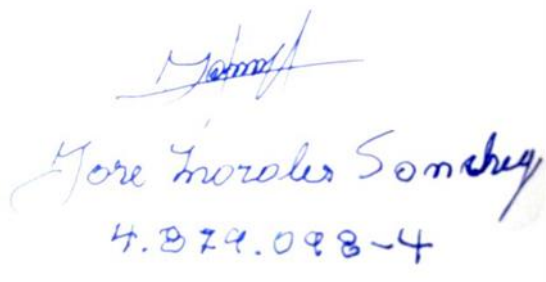 Jose Morales Sanchez
4.879.098-4